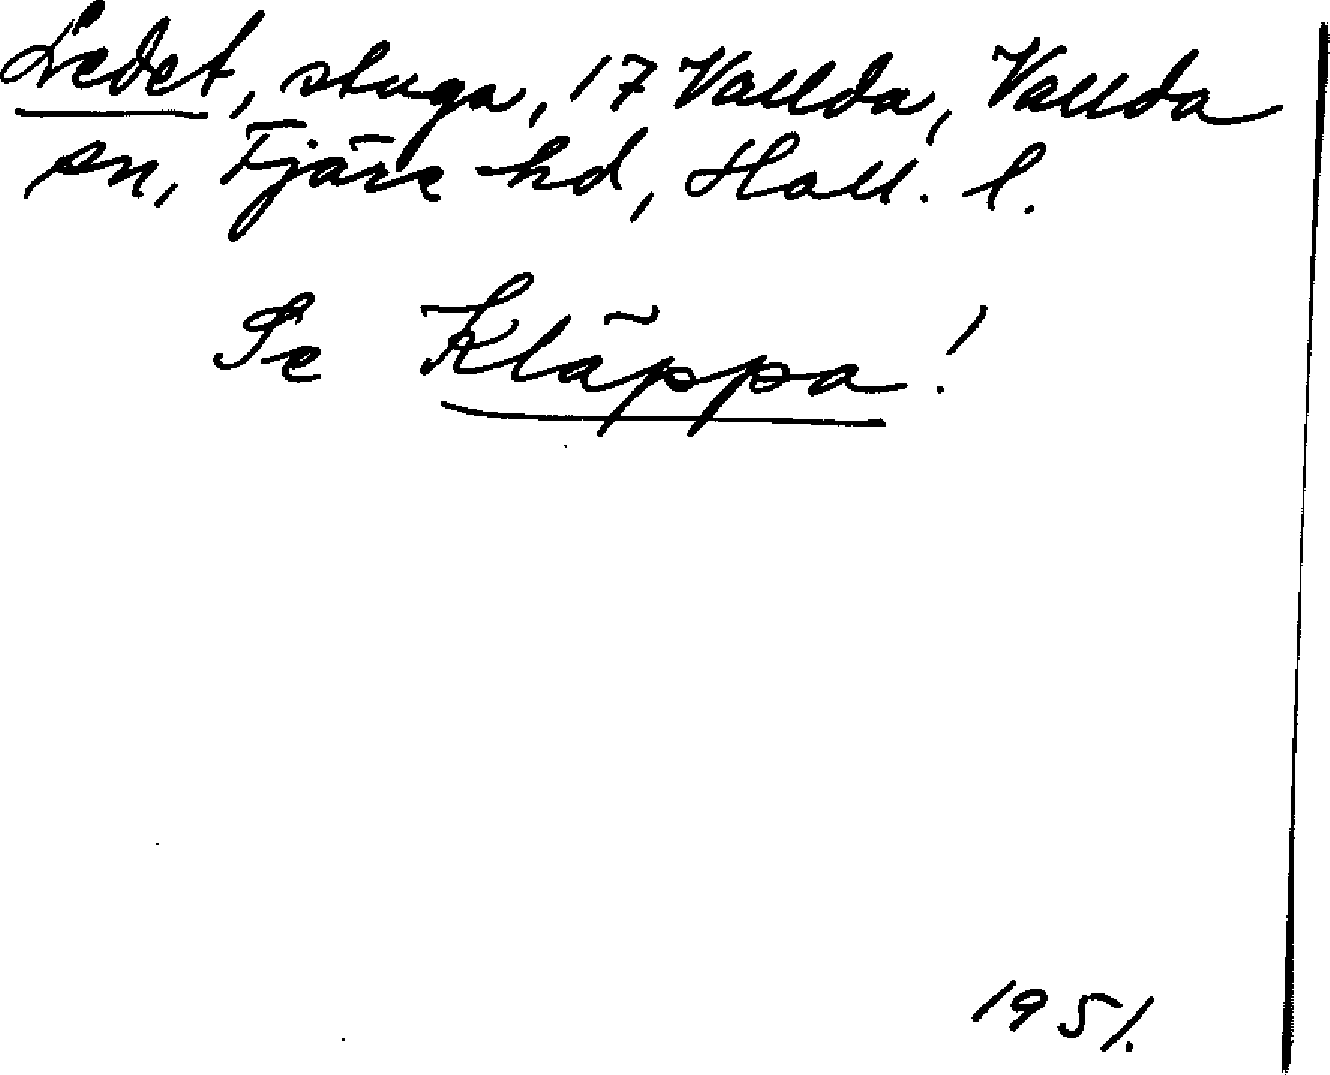 Ledet, stuga, 17 Vallda, Vallda
sn, Fjäre hd, Hall. l.
Se Kläppa!
1951.